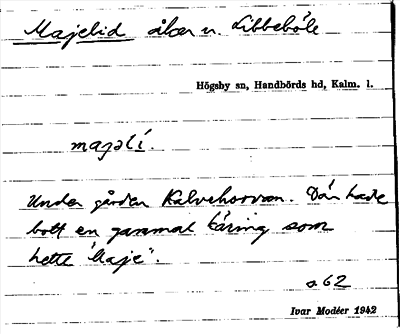 Majelid åker n. Libbehöle
Högsby sn, Handbörds hd, Kalm. l.
majəlí.
Under gården Kalvehorvan. Där hade
bott en gammal käring som
hette "Maje".
s. 62
Ivar Modéer 1942